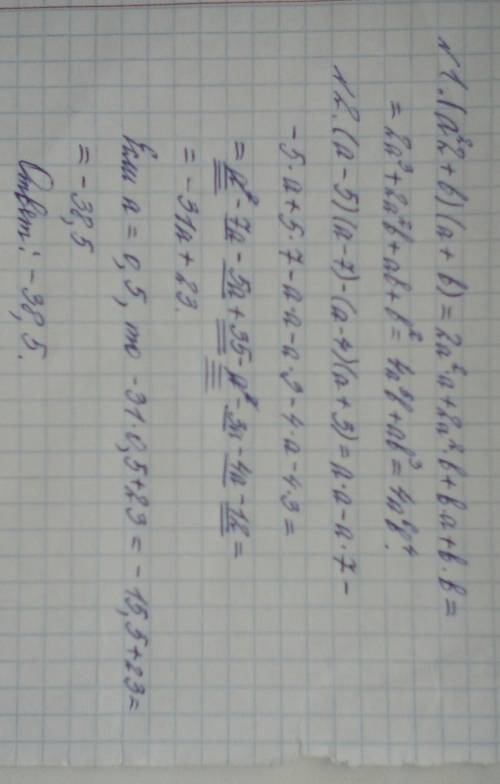 №1. (a²2 + b) (a + b) = 2a²·a + 2a²·b + b·a + b·b =
= 2a³ + 2a²b + ab + b² = 4a⁵b + ab³ = 4a⁶b⁴.
№2. (a - 5) (a - 7) - (a - 4) (a + 3) = a·a - a·7 -
- 5·a + 5·7 - a·a - a·3 - 4·a - 4·3 =
= a² - 7a - 5a + 35 - a² - 3a - 4a - 12 =
= - 31a + 23.
Если a = 0,5, то -31·0,5 + 23 = - 15,5 + 23 =
= - 38,5
Ответ: - 38,5.